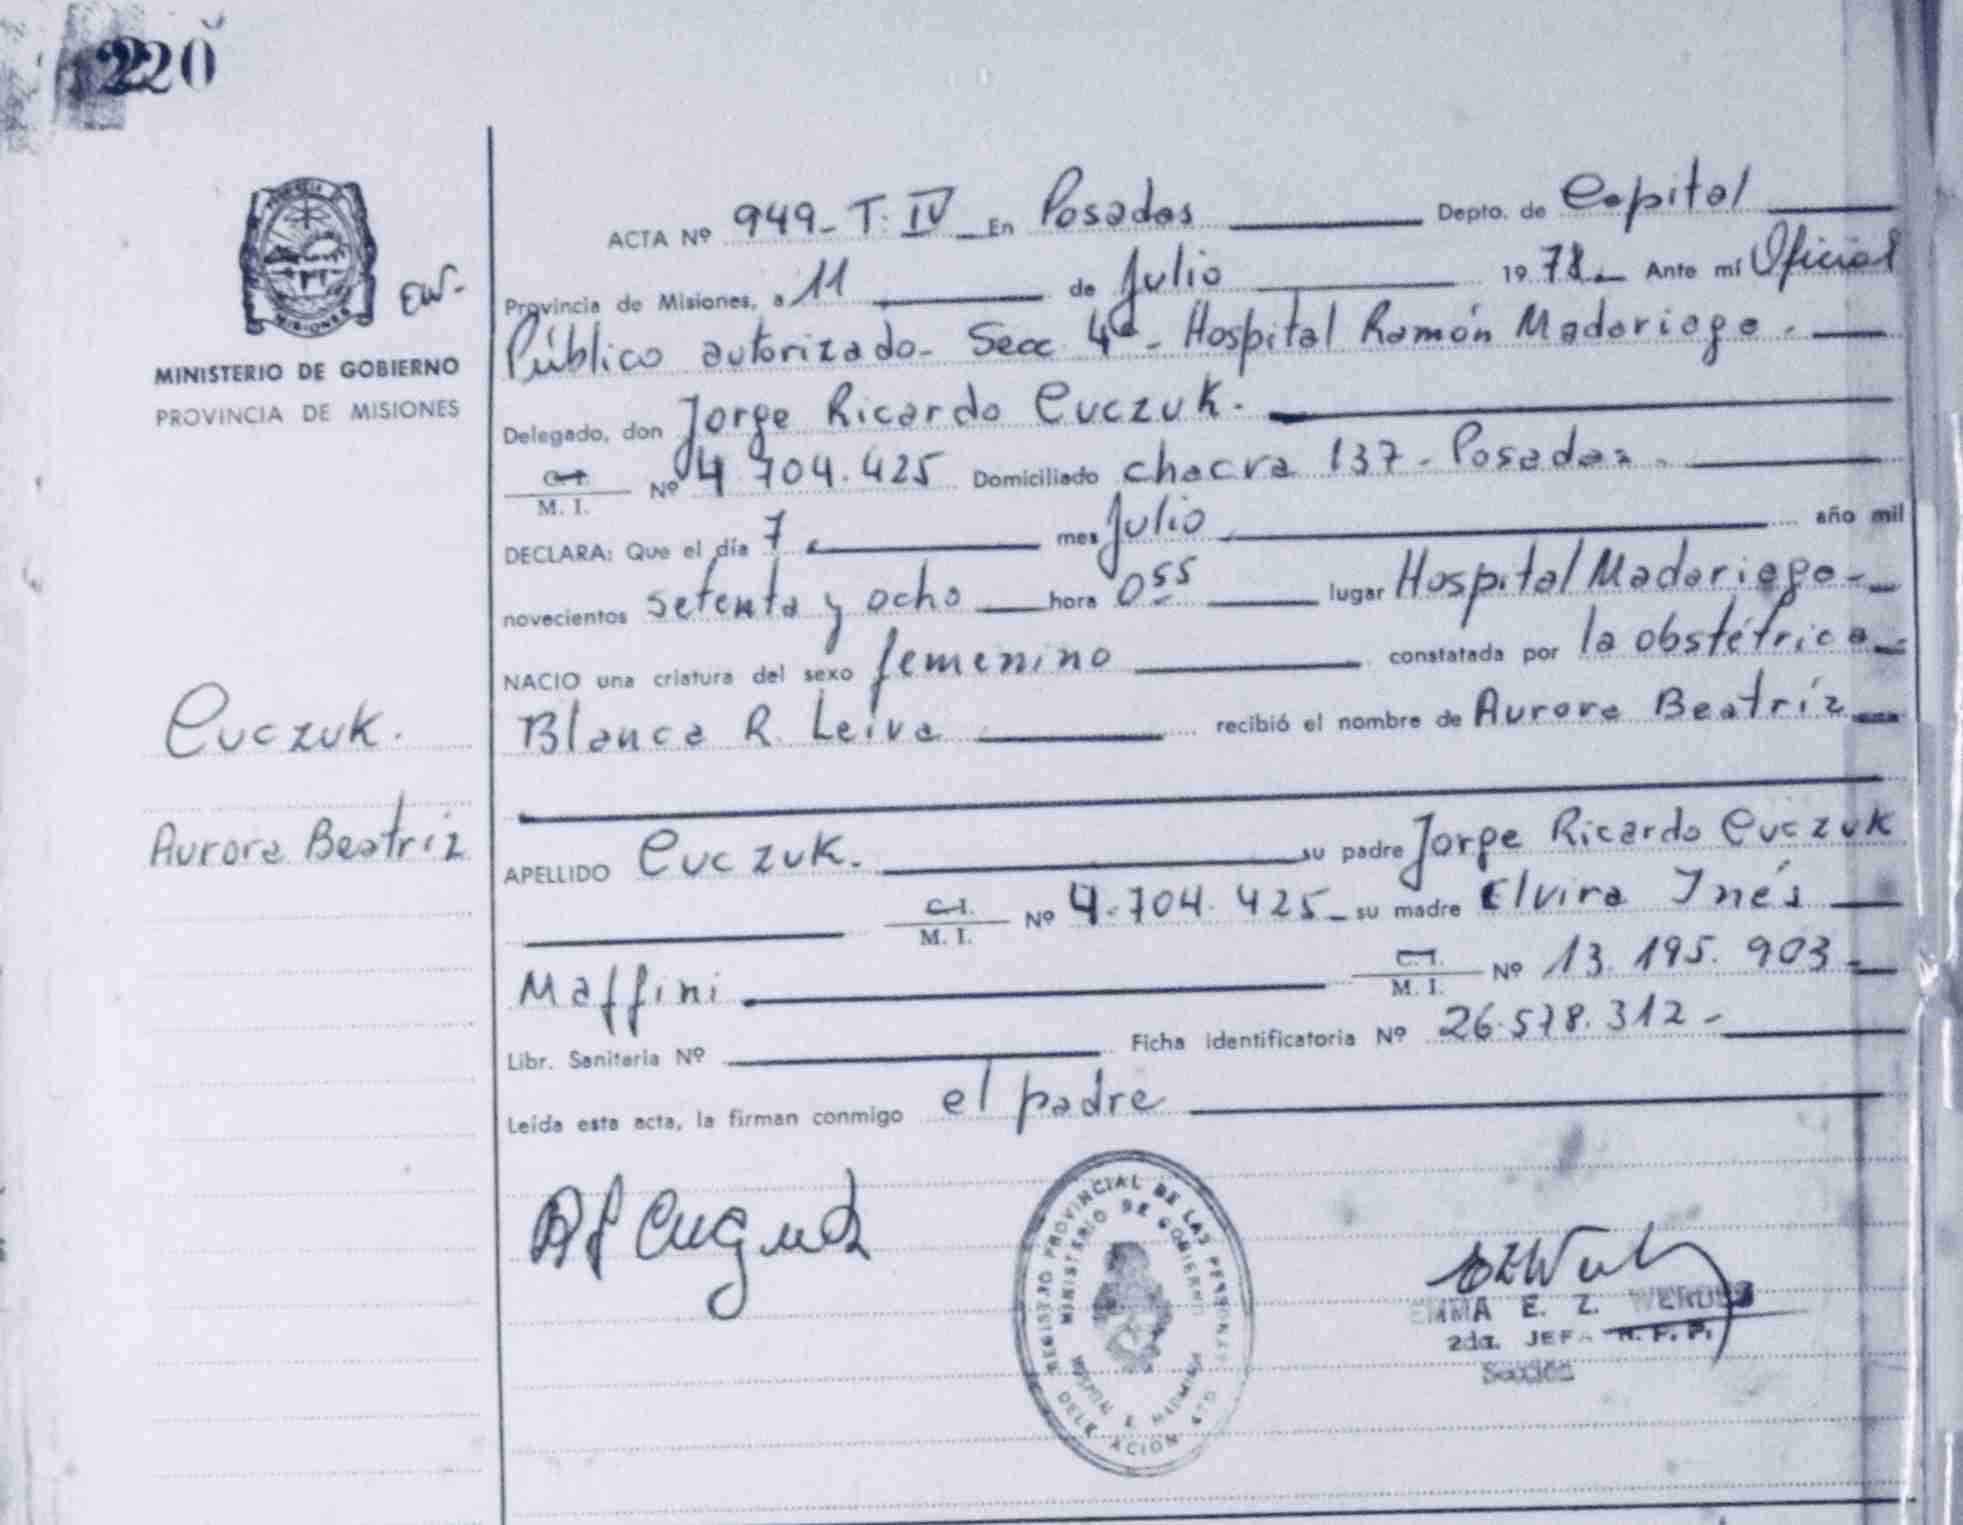 220
ACTA Nº 949- T. IV En Posadas Depto. de Capital
Provincia de Misiones, a 11 de Julio 1978- Ante mí Oficial
Público autorizado- Secc 4ª- Hospital Ramón Madariaga.
MINISTERIO DE GOBIERNO
PROVINCIA DE MISIONES
Delegado, don Jorge Ricardo Cuczuk.
C.I. M. I. Nº 4.704.425 Domiciliado chacra 137- Posadas.
DECLARA: Que el día 7 mes Julio año mil
novecientos setenta y ocho hora 0 55 lugar Hospital Madariaga-
NACIO una criatura del sexo femenino constatada por la obstétrica
Cuczuk.
Blanca R. Leiva recibió el nombre de Aurora Beatríz
Aurora Beatriz
APELLIDO Cuczuk. su padre Jorge Ricardo Cuczuk
C.I. M. I. Nº 4.704.425- su madre Elvira Inés
Maffini C.I. M. I. Nº 13.195.903-
Libr. Sanitaria Nº Ficha identificatoria Nº 26.578.312-
Leída esta acta, la firman conmigo el padre
REGISTRO PROVINCIAL DE LAS PERSONAS
MINISTERIO DE GOBIERNO
DELEGACION
EMMA E. Z.
2da. JEFA R. P. P.
Sección